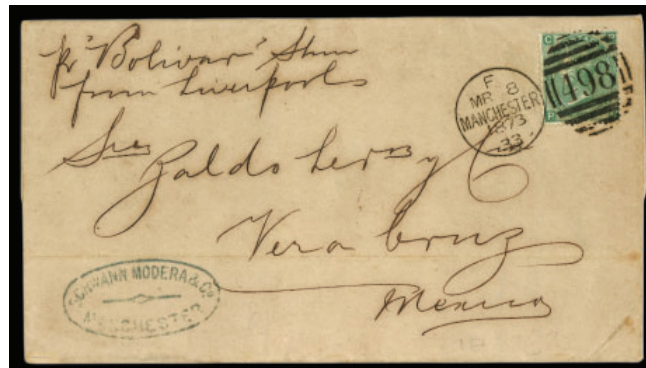 pr "Bolivar" Stmr
from Liverpool
F
MR 8
MANCHESTER
1873
33
C
498
P
Sres
Zaldo herms y C
Vera Cruz
Mexico
SCHWANN MODERA & Co
MANCHESTER